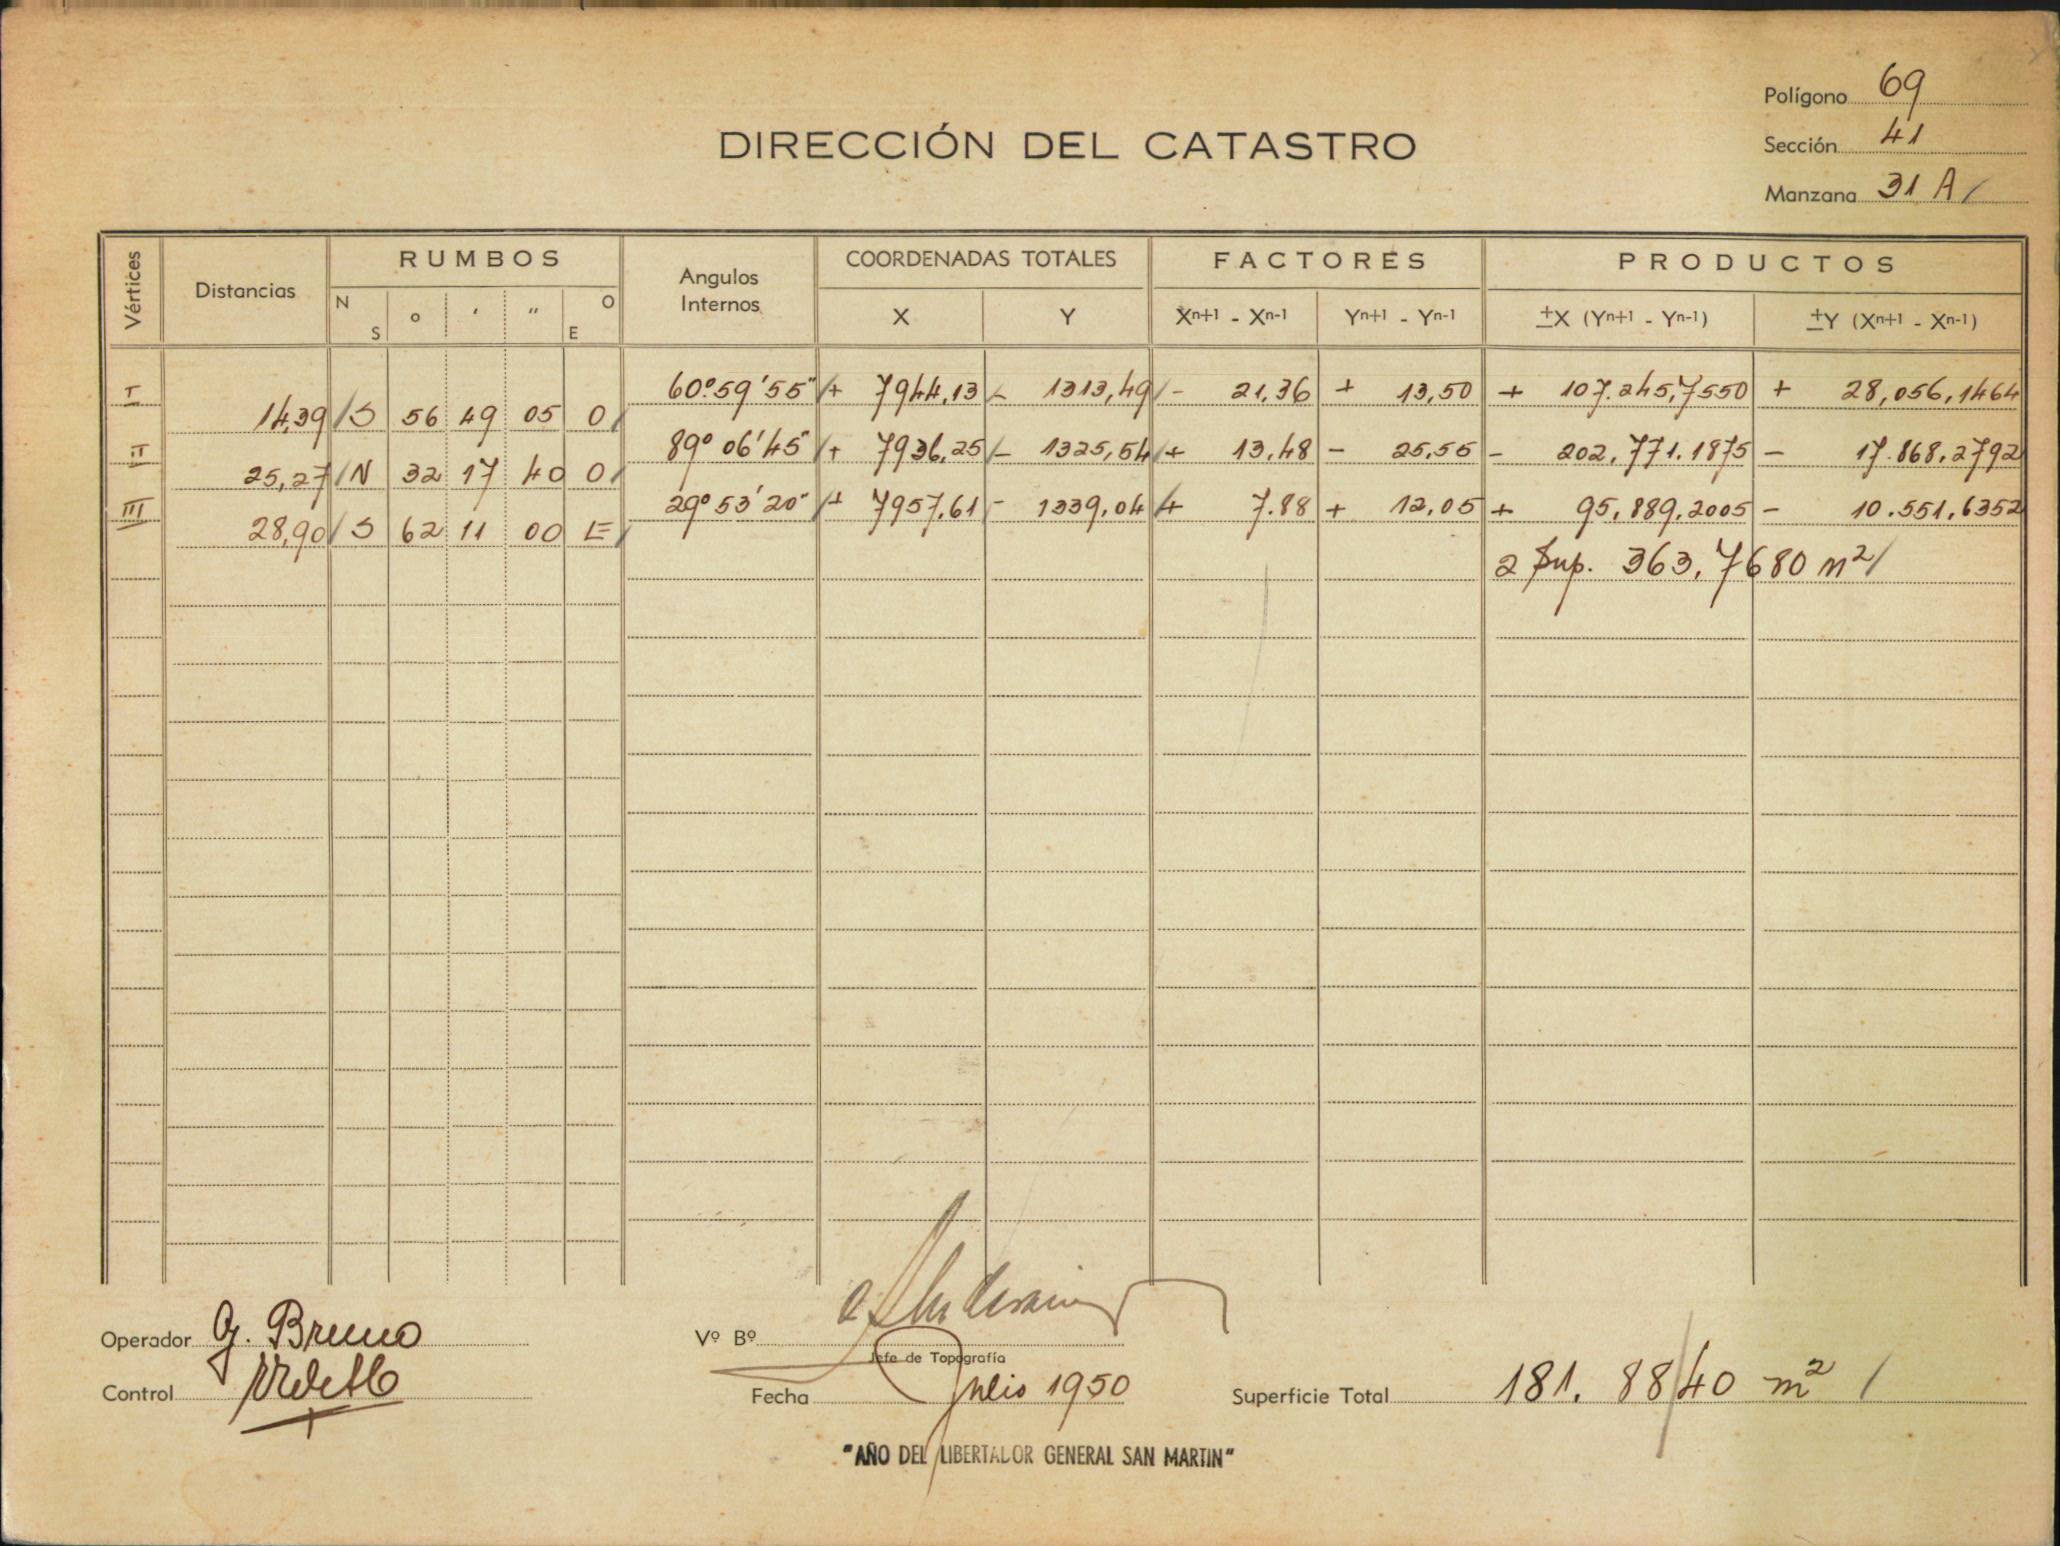 Polígono 69
DIRECCIÓN DEL CATASTRO
Sección 41
Manzana 31 A /
Vértices Distancias RUMBOS Angulos Internos COORDENADAS TOTALES FACTORES PRODUCTOS
N S o ' " O E X Y Xn+1 - Xn-1 Yn+1 - Yn-1 ±X (Yn+1 - Yn-1) ±Y (Xn+1 - Xn-1)
I 60º59'55" /+ 7944,13 /- 1313,49 /- 21,36 + 13,50 + 107.245,7550 + 28,056,1464
14,39 / S 56 49 05 O /
II 89º 06'45" /+ 7936,25 /- 1325,54 /+ 13,48 - 25,55 - 202,771.1875 - 17.868,2792
25,27 / N 32 17 40 O /
III 29º53'20" /+ 7957,61 - 1339,04 /+ 7.88 + 12,05 + 95,889,2005 - 10.551,6352
28,90 / S 62 11 00 E /
2 Sup. 363,7680 m² /
Operador G. Bruno
Vº Bº
Jefe de Topografía
Control
Fecha Julio 1950
Superficie Total 181. 88/40 m² /
"AÑO DEL LIBERTADOR GENERAL SAN MARTIN"